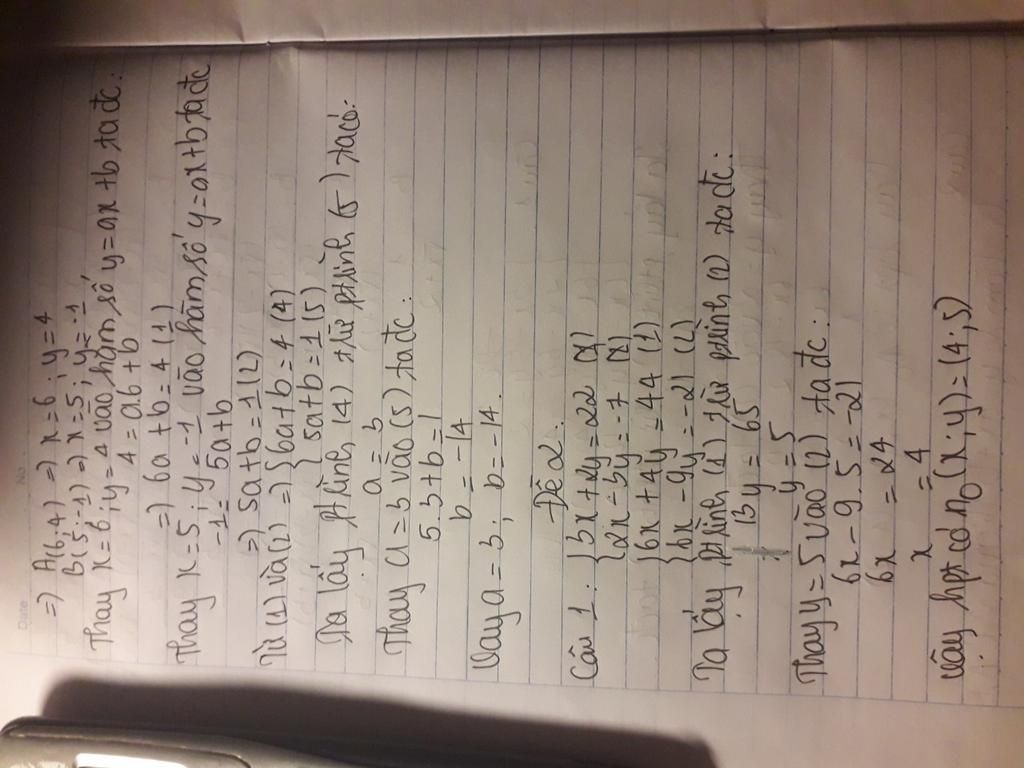 Date No.
=) A(6;4) =) x=6; y=4
B(5;-1) =) x=5; y=-1
Thay x=6; y=4 vào hàm số y=ax+b ta đc:
4 = a6+b
=) 6a+b=4 (1)
Thay x=5; y=-1 vào hàm số y=ax+b ta đc
-1= 5a+b
=) 5a+b=1 (2)
Từ (1) và (2) =) { 6a+b=4 (4)
{ 5a+b=1 (5)
Ta lấy ptlình (4) trừ ptlình (5) ta có:
a = 3
Thay a=3 vào (5) ta đc:
5.3+b=1
b = -14
Vay a=3; b=-14.
Đề 2:
Câu 1: { 3x+2y=22
{ 2x-3y=-7
{ 6x+4y=44 (1)
{ 6x-9y=-21 (2)
Ta lấy ptlình (1) trừ ptlình (2) ta đc:
13y = 65
y = 5
Thay y=5 vào (2) ta đc:
6x-9.5=-21
6x = 24
x = 4
Vậy hpt có n0 (x;y)=(4;5)